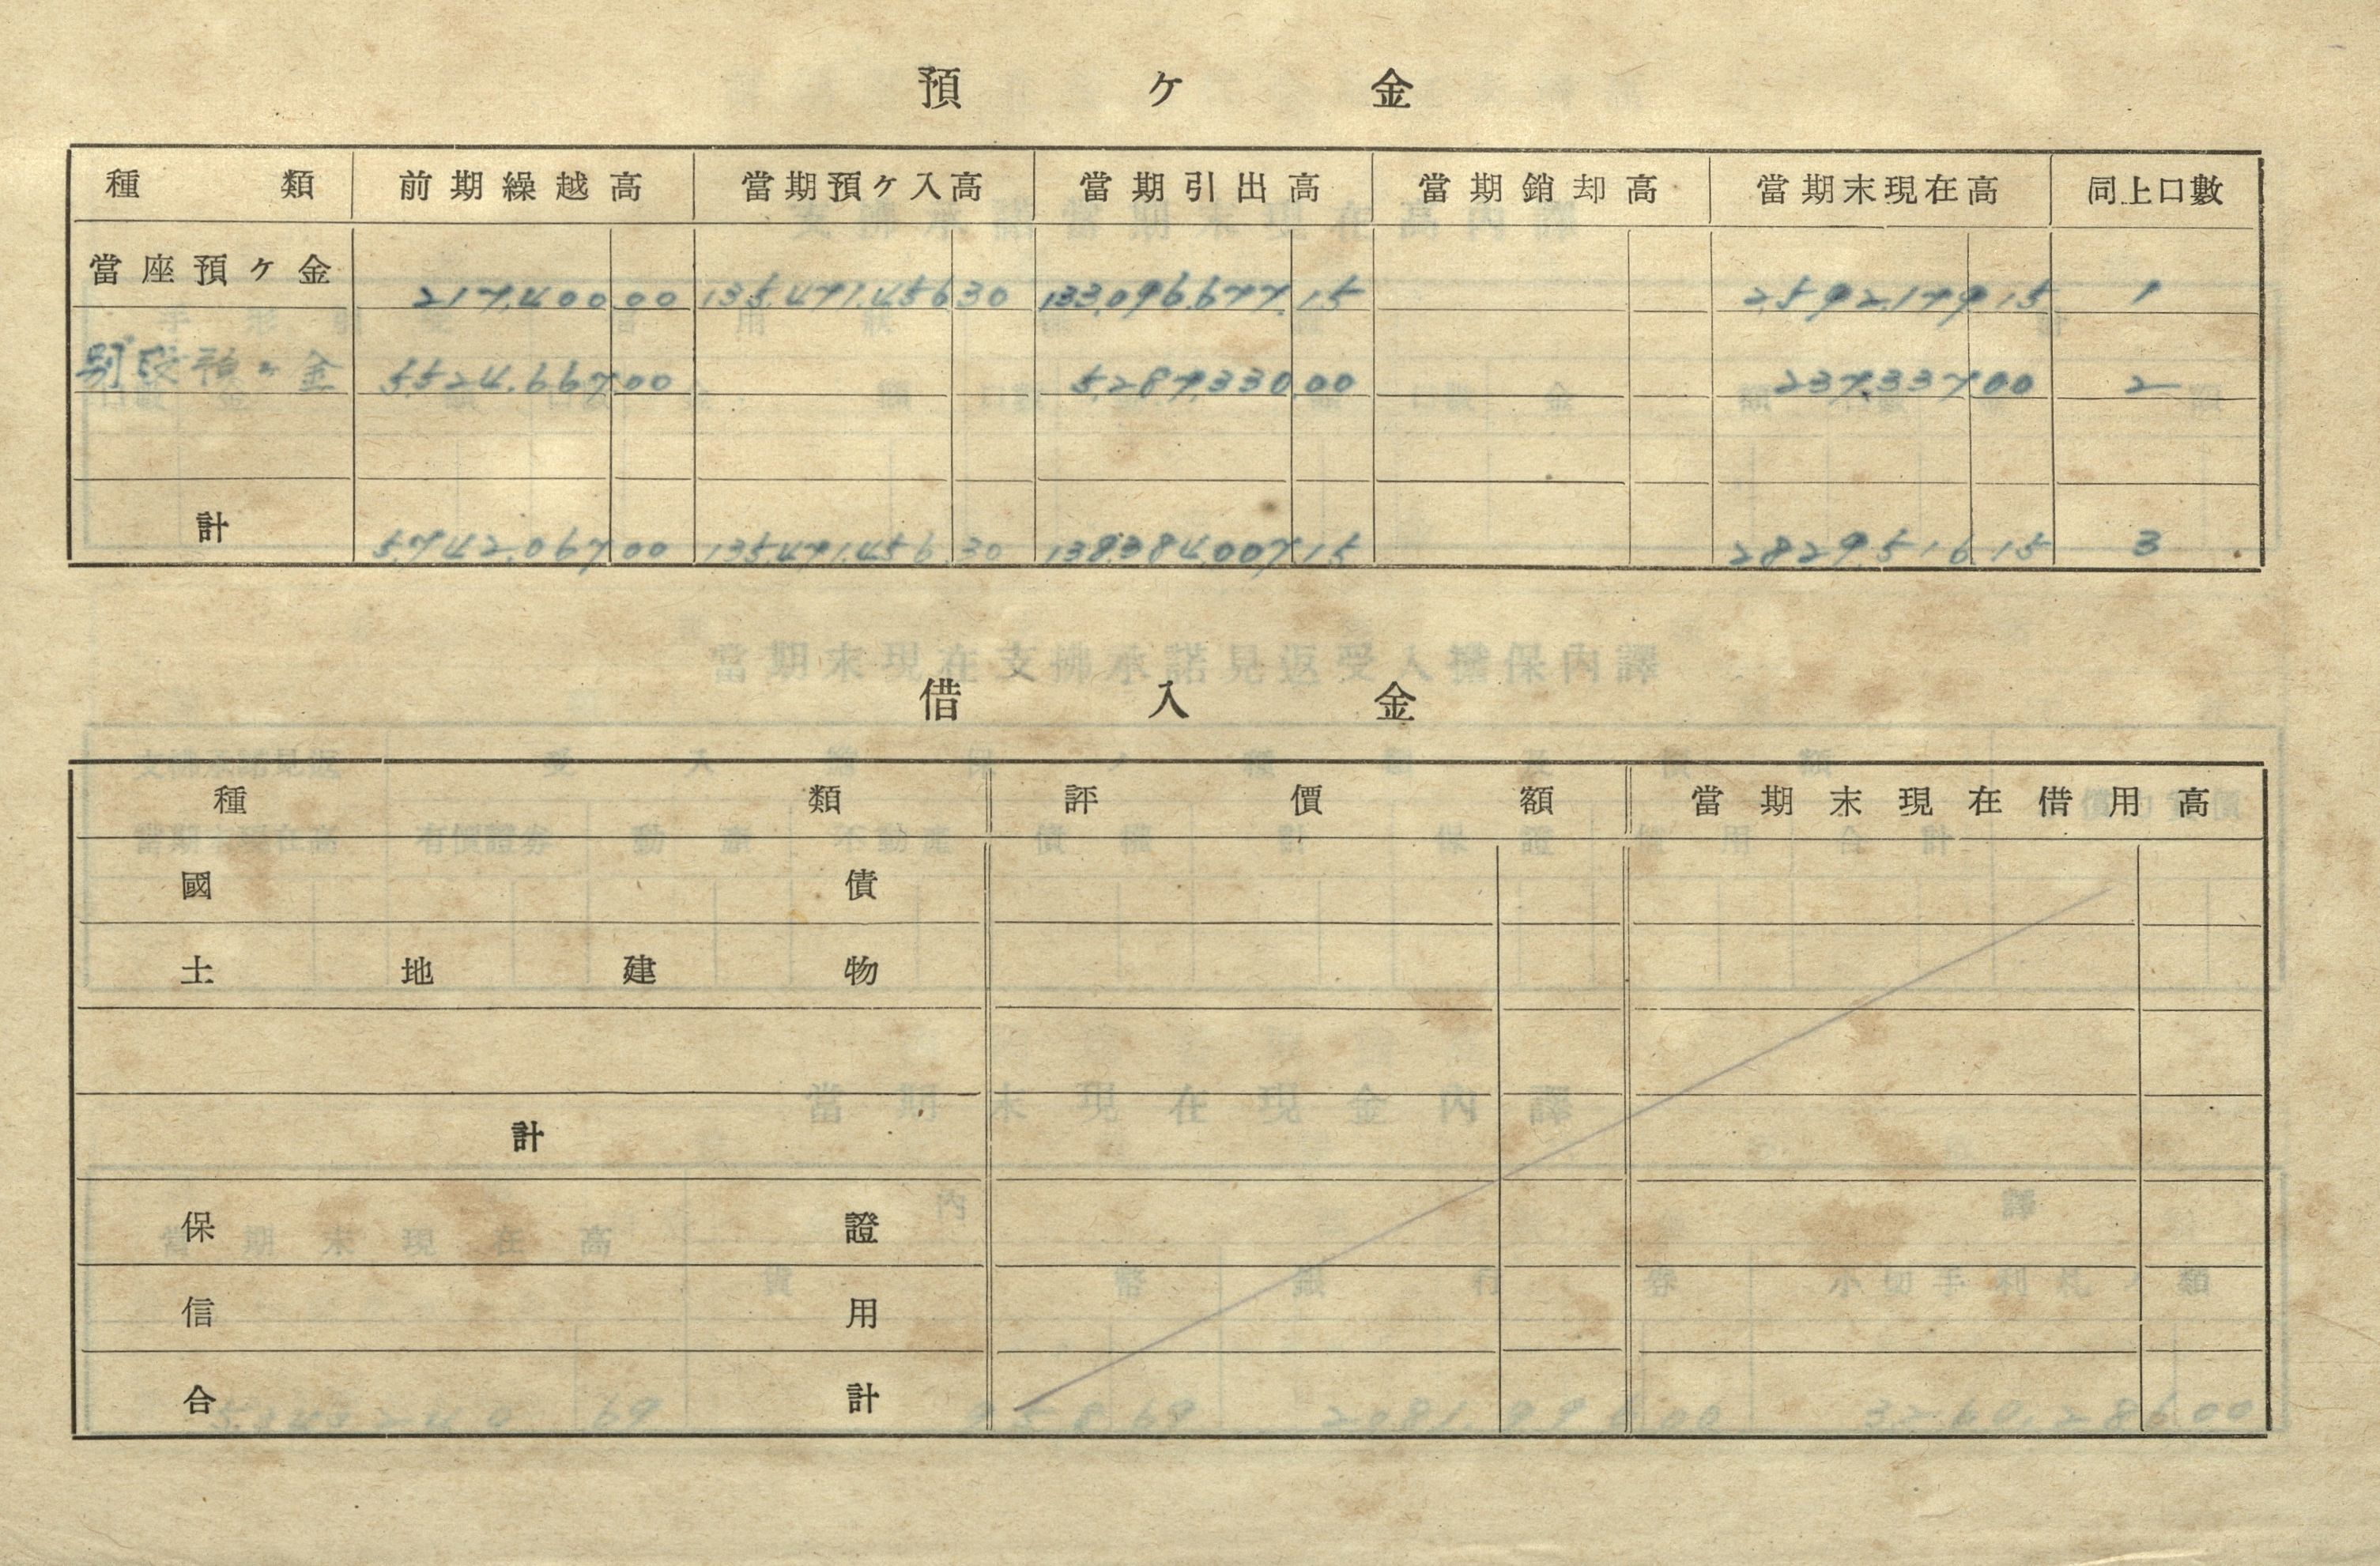 預ケ金
種類 前期繰越高 當期預ケ入高 當期引出高 當期銷却高 當期末現在高 同上口數
當座預ケ金 217,400 00 135,471,456 30 133,096,677 15 2,592,179 15 1
別段預ケ金 5,524,667 00 5,287,330 00 237,337 00 2
計 5,742,067 00 135,471,456 30 138,384,007 15 2,829,516 15 3
借入金
種類 評價額 當期末現在借用高
國債
土地建物
計
保證
信用
合計